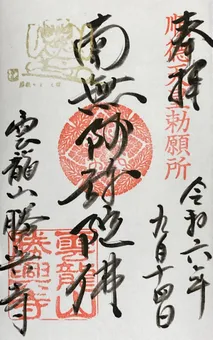 奉拝
順徳天皇勅願所
令和六年
九月十四日
南無阿弥陀佛
雲龍山勝興寺
雲龍山
勝興寺